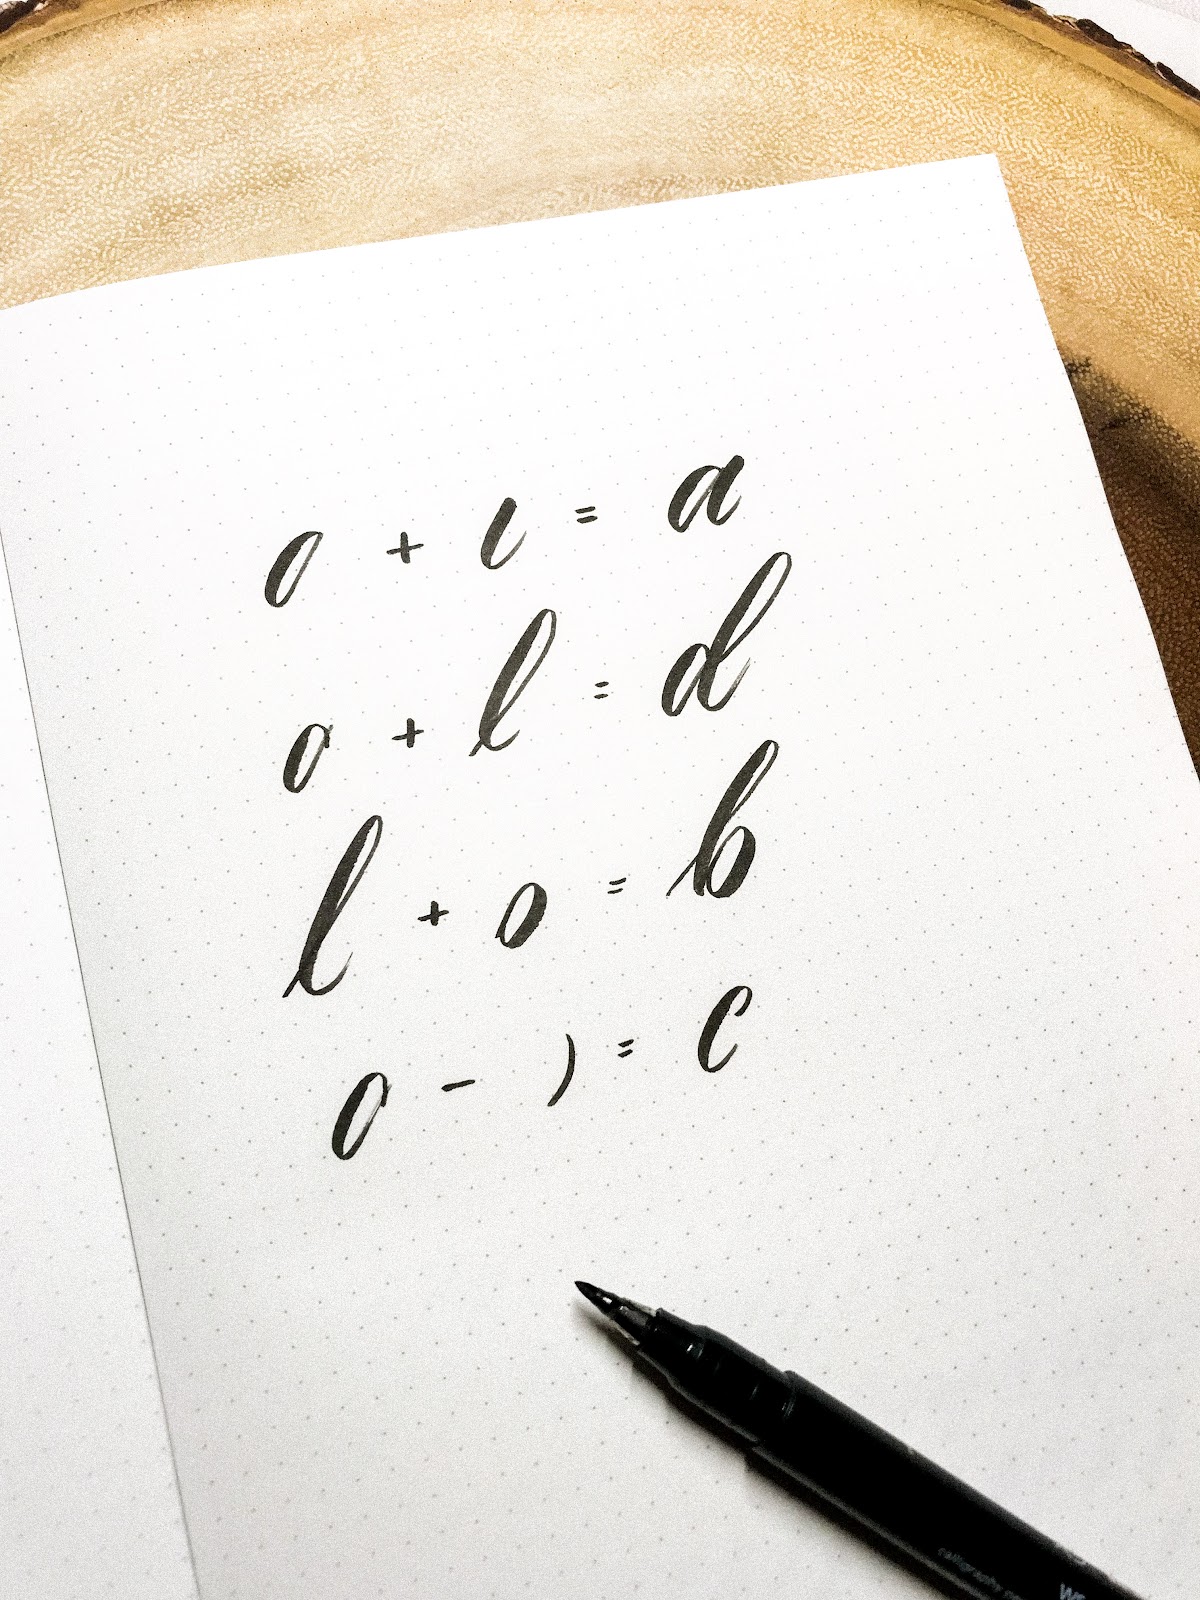 o + ι = a
o + l = d
l + o = b
o - ) = c
calligraphy